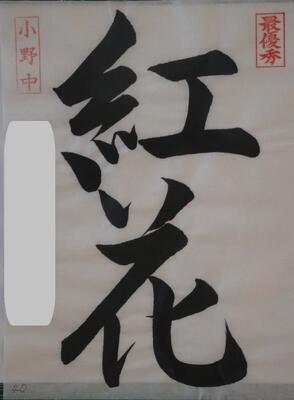 最優秀
紅花
小野中
20